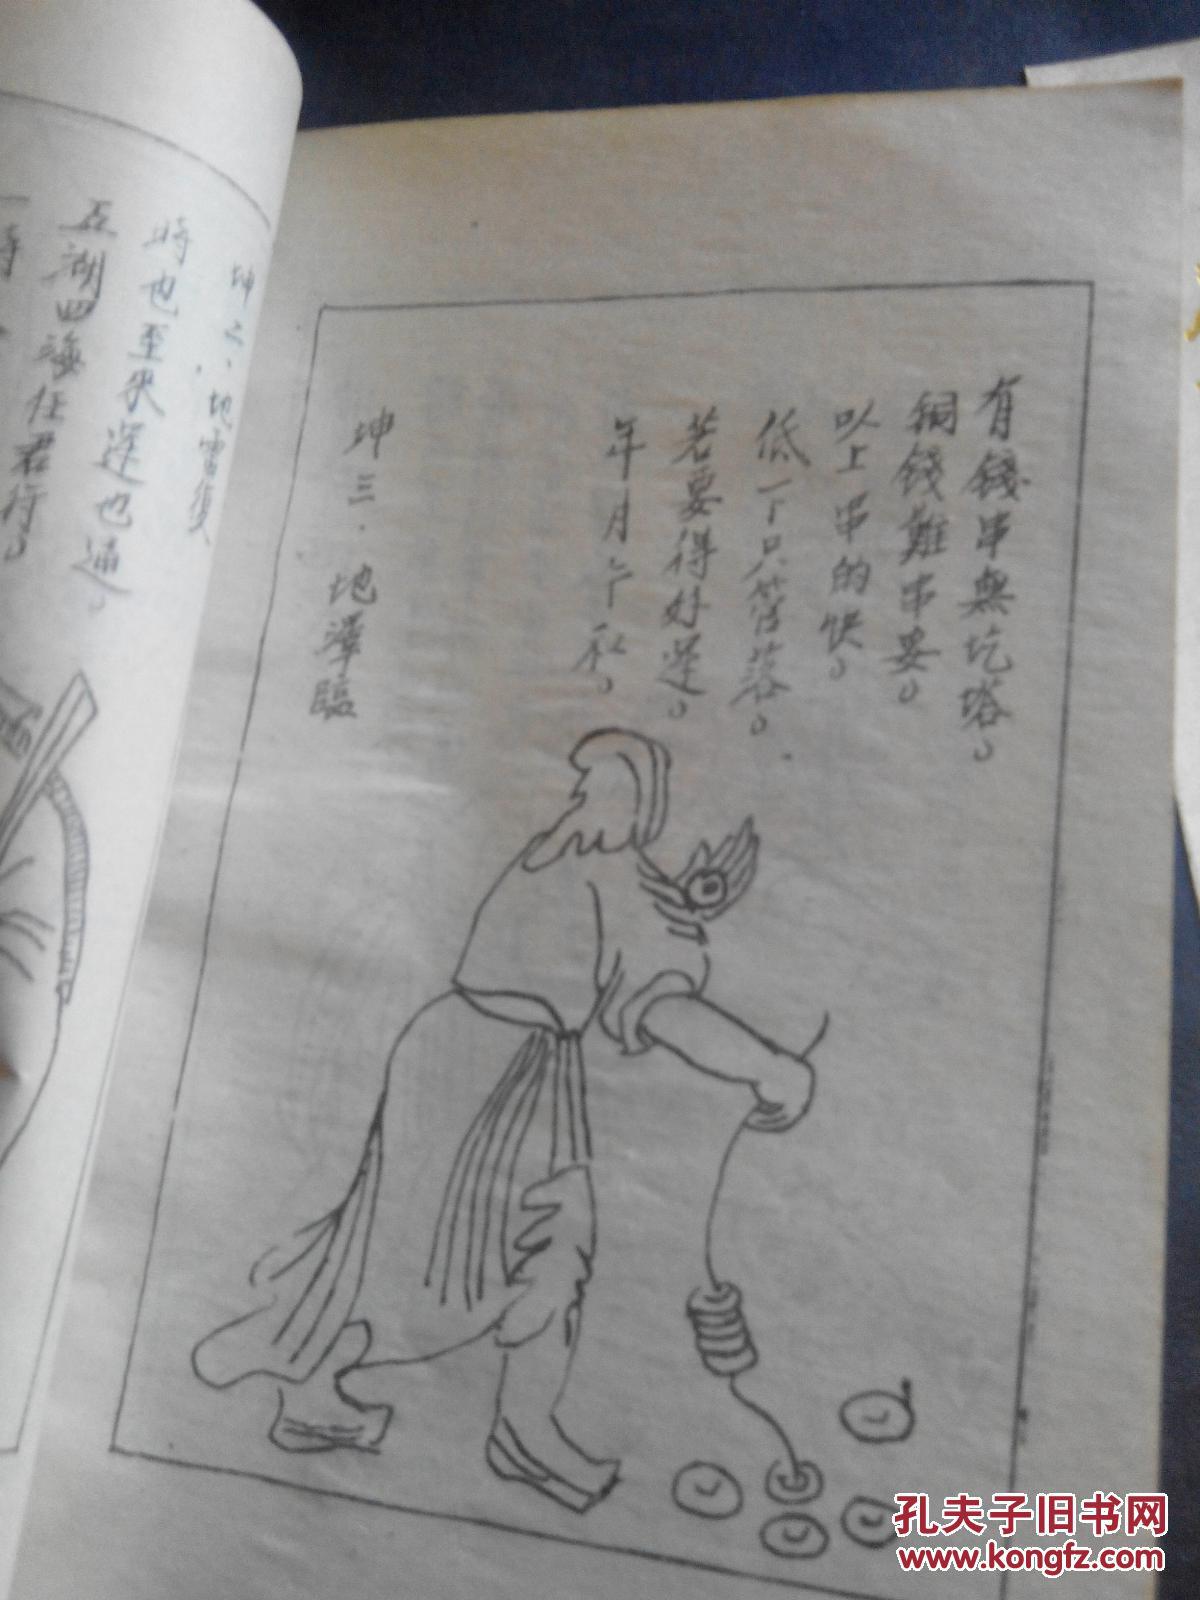 有錢串無圪塔。
銅錢難串妥。
以上串的快。
低下只管落。
若要得好運。
年月
坤三.地澤臨
坤二、地雷復
時也至來運也通。
五湖四海任君行。
時
孔夫子旧书网
www.kongfz.com